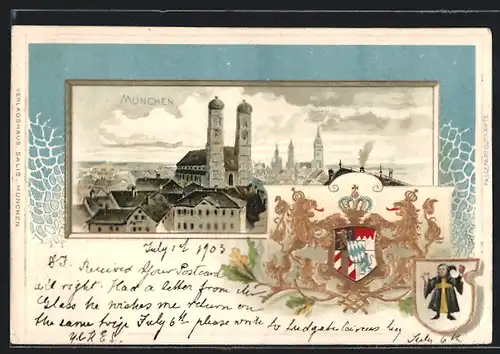 MÜNCHEN
VERLAGSHAUS SALIS, MÜNCHEN
PASSEPARTOUTKARTE
July 1st 1903
Received Your Postcard
all right. Had a letter from
Glass he wishes me return on
the same trip July 6th please write to Ludgate Circus by
July 6th